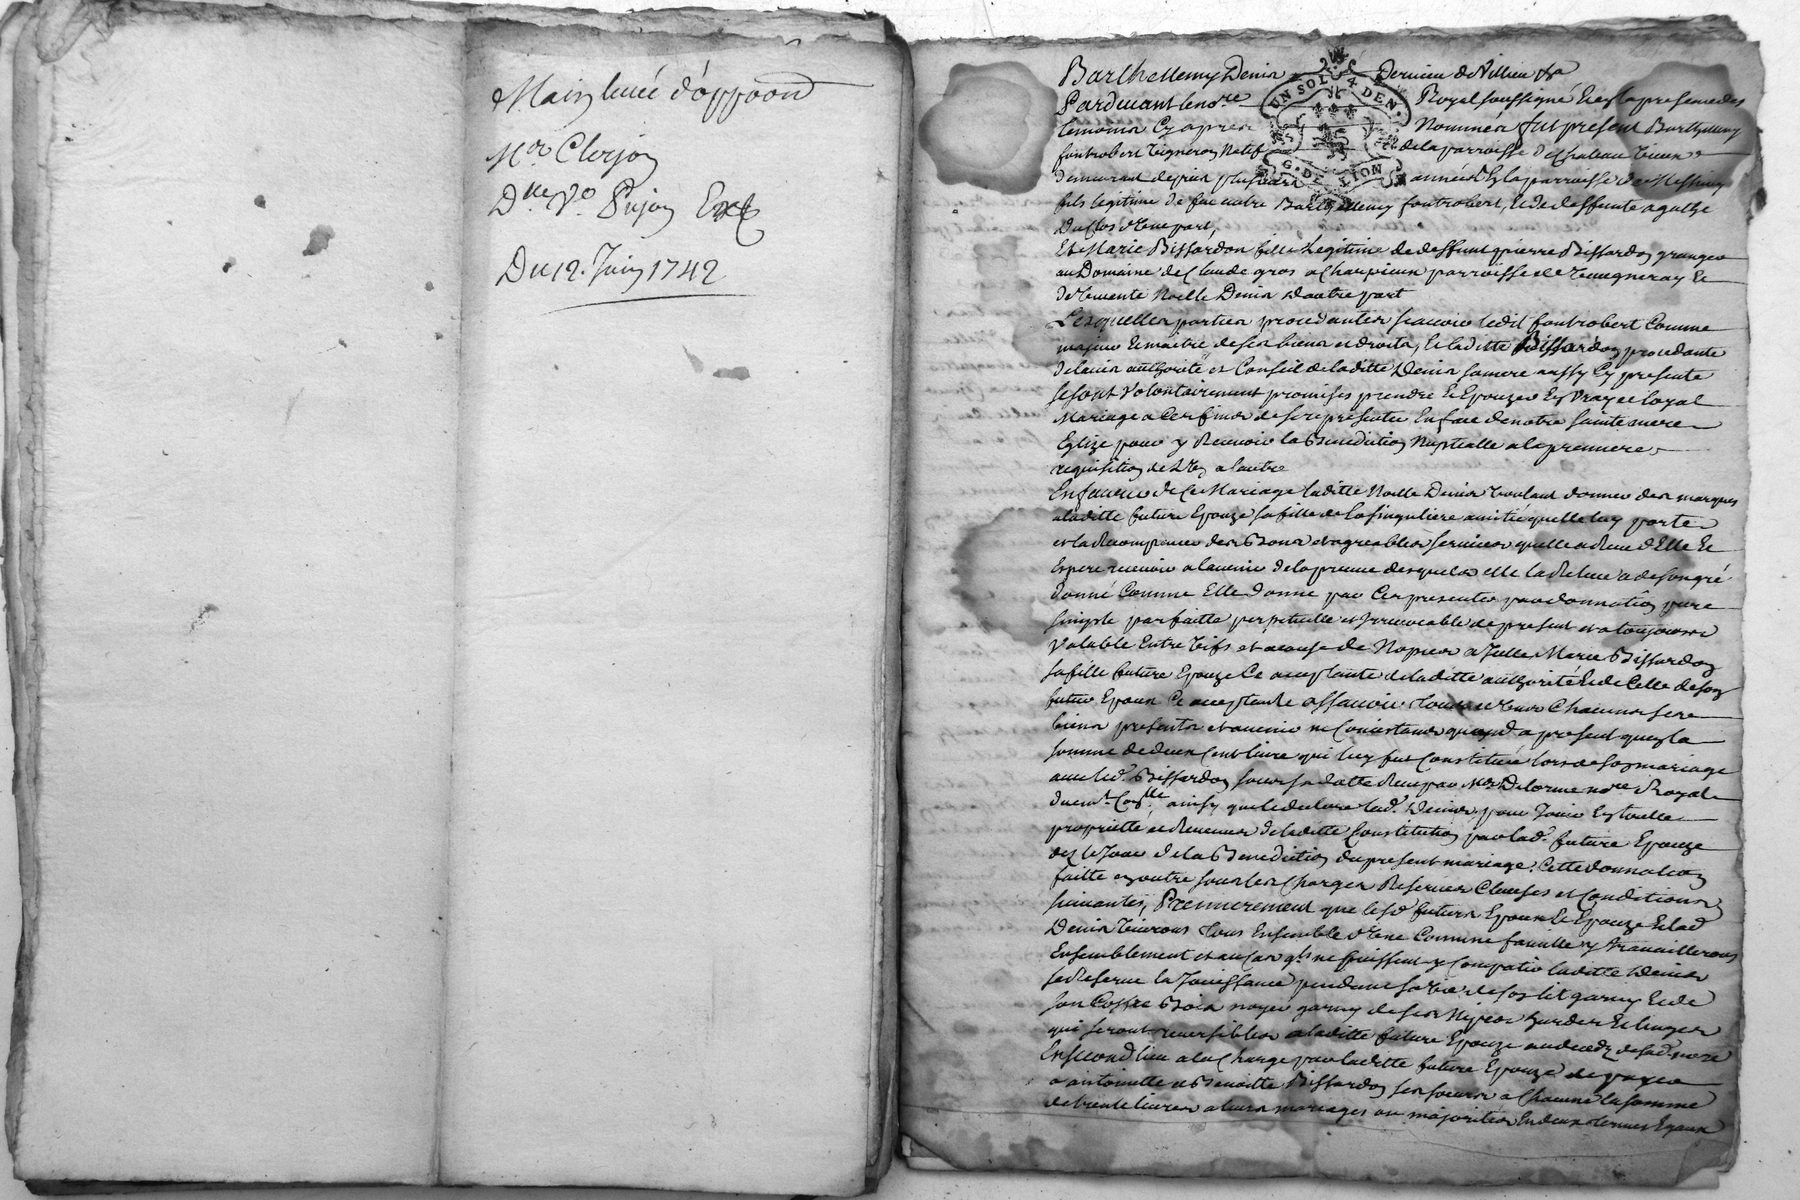 Main levée d'oppoon
Mre Clerjon
Dlle Ve Pujon
Du 12. Juin 1742
Barthellemy Denis Dernieu de Villieu
UN SOL 4 DEN.
G. DE LION
Pardevant le nore Royal soussigné et en la presence des
temoins cy apres Nommés fut present Barthellemy
fontrobert vigneron Natif de la parroisse de chateau vieux
demeurant depuis plusieurs années en la parroisse de Messimy
fils legitime de feu autre Barthellemy fontrobert, et de deffunte agathe
Duclos d'une part,
Et Marie Biffardon fille Legitime de deffunt pierre Biffardon granger
au Domaine de Claude gros a Chaupieux parroisse de vaugneray Et
de vivente Noelle Denis d'autre part
Lesquelles parties procedantes scavoir ledit fontrobert Comme
majeur et maitre de ses biens et droits, Et laditte Biffardon procedante
de l'avis authorité et Conseil de laditte Denis sa mere aussy Cy presente
se sont volontairement promises prendre et Epouzer En vray et loyal
Mariage a Ces fins de se representer En face de notre sainte mere
Eglize pour y Recevoir la Benediction Nuptialle a la premiere
requisition de L'un a l'autre
En faveur de Ce Mariage laditte Noelle Denis voulant donner des marques
a laditte future Epouze sa fille de la singuliere amitié quelle luy porte
et la Recompence des Bons et agreables services quelle a Receu d'Elle Et
Espere recevoir a l'avenir de la preuve desquels elle la Releve a de son gré
donné Comme Elle donne par Ces presentes par donnation pure
simple parfaitte perpetuelle et irrevocable de present et a toujours
valable Entre vifs et a cause de Nopces a Marie Biffardon
sa fille future Epouze Ce acceptante de laditte authorité Et de Celle de son
futur Epoux Ce acceptante assavoir tous et Chacuns ses
biens presents et avenir ne Consistants quand a present quen la
somme de deux cent livre qui luy fut Constituée lors de son mariage
avec led. Biffardon sous sa datte Receu par Me Delorme nore Royal
ainsy que le declare lad. Denis, pour Jouir En toutte
proprietté et Revenus de laditte Constitution par lad. future Epouze
dez le Jour de la Benediction du present mariage. Cette donnation
faitte en outre sous les Charges Reserves Clauses et Conditions
suivantes, Premierement que lesd. futurs Epoux Et Epouze Et lad.
Denis vivrons tous Ensemble d'une Commune famille y travaillerons
Ensemblement et au cas qls ne puissent se Compatir laditte Denis
se Reserve la Jouissance pendant sa vie de son lit garny Et de
son Coffre Bois noyer garny de ses Nipes hardes Et linges
qui seront reversibles a laditte future Epouze au decedz de sad. mere
En second lieu a la Charge par laditte future Epouze de payer
a antoinette et Benoitte Biffardon ses soeurs a Chacune la somme
de trente livres a leurs mariages ou majorités En deux termes Egaux